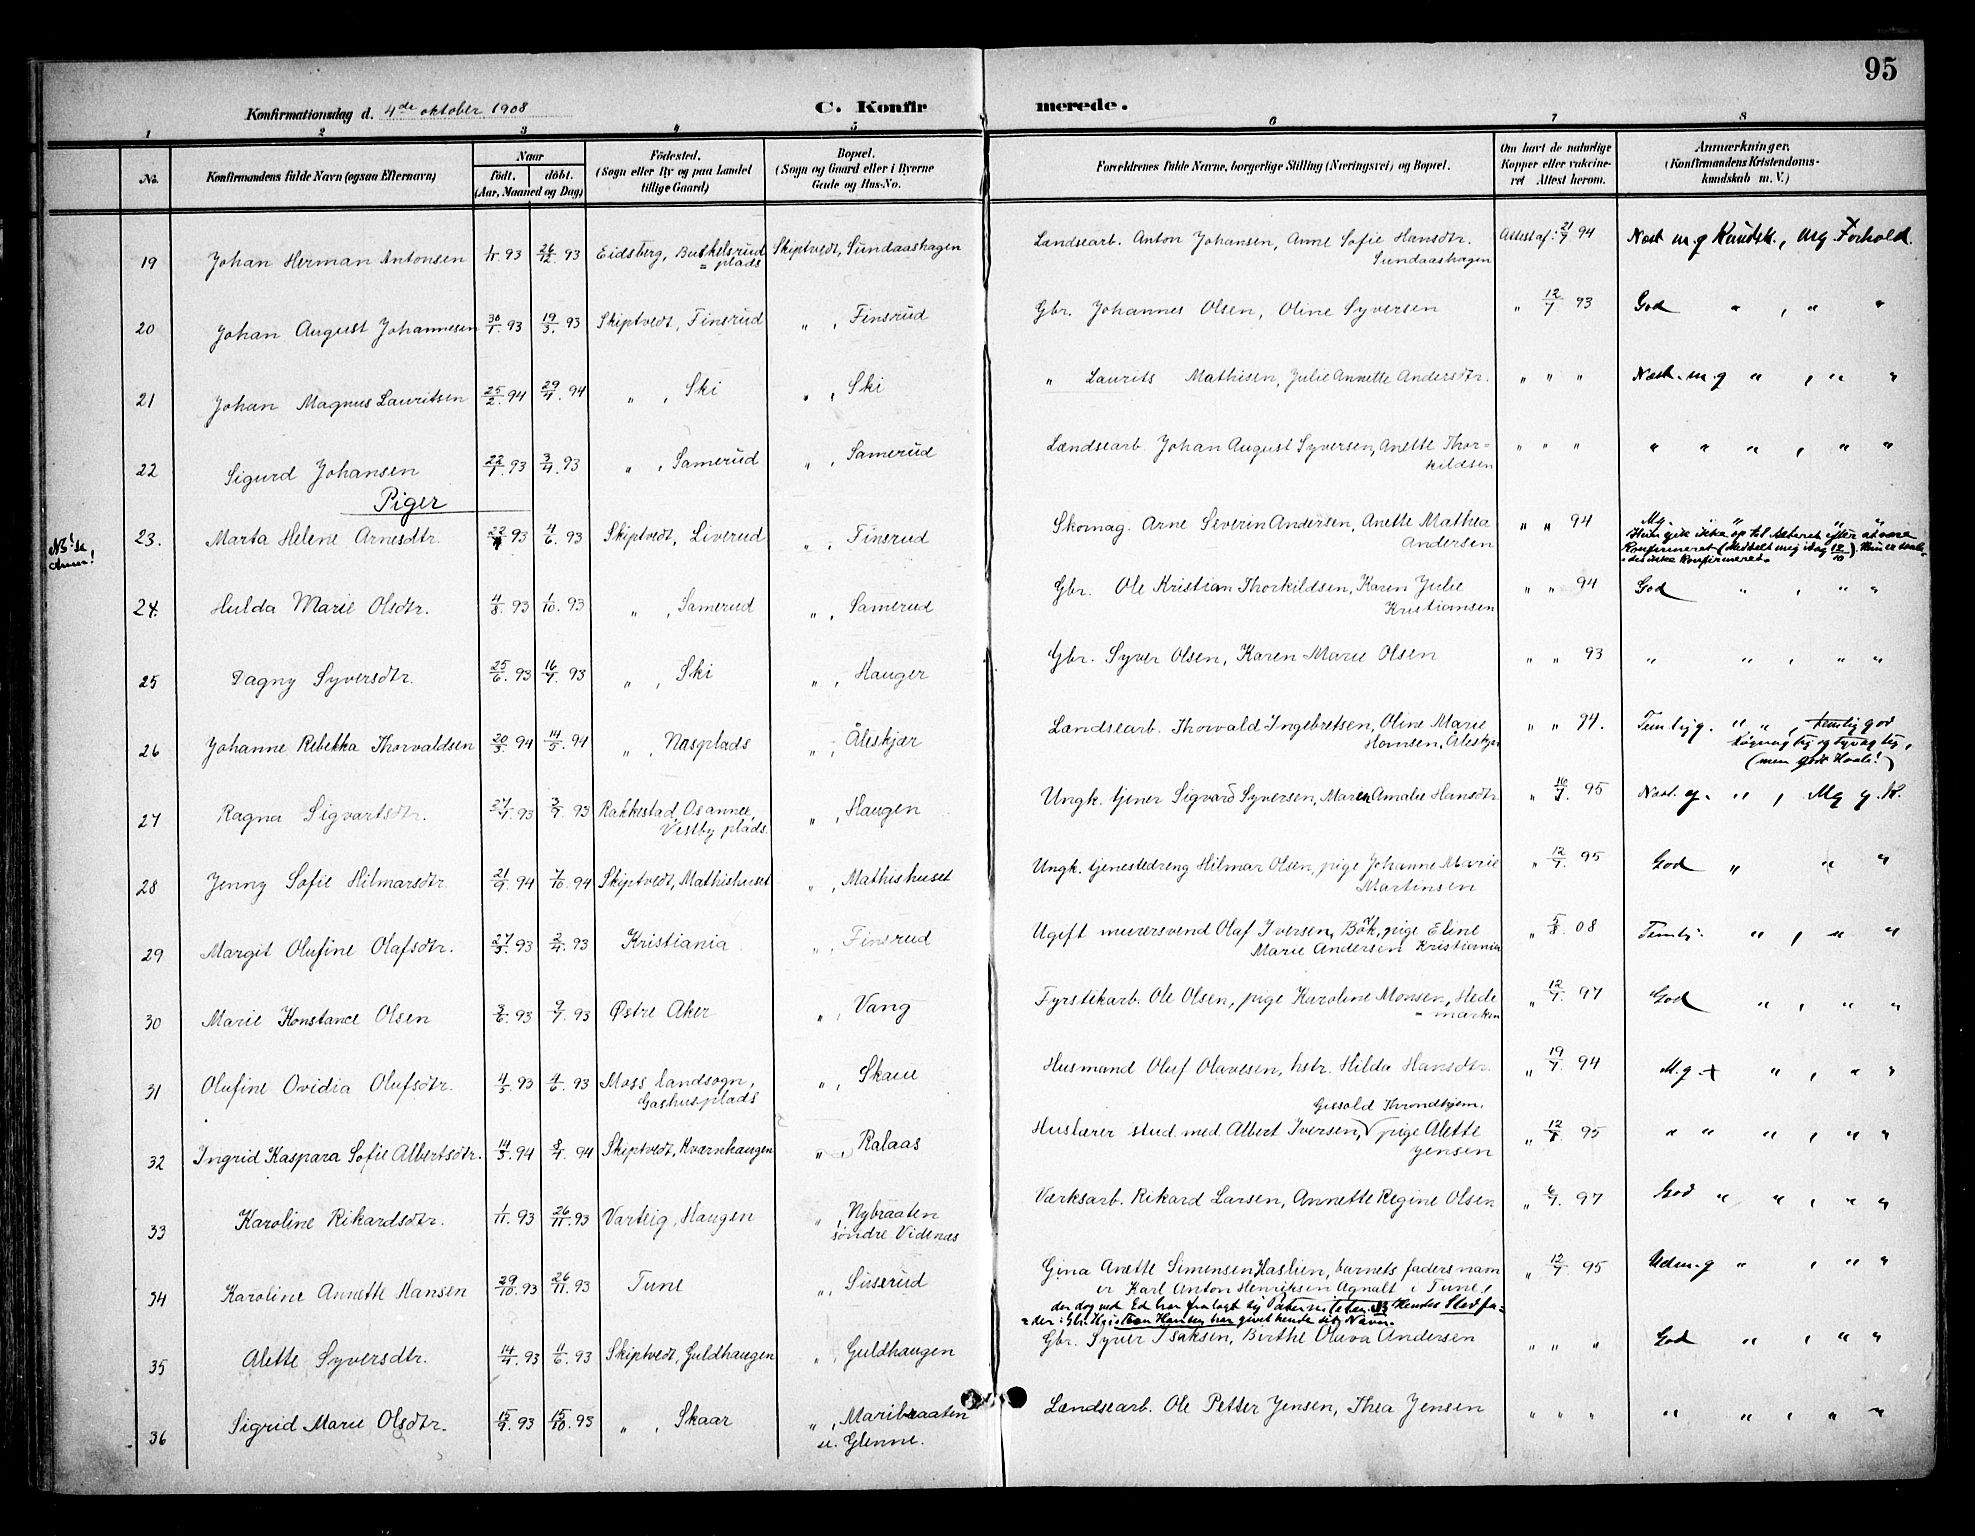 95
Konfirmationsdag d. 4de oktober 1908
C. Konfirmerede.
1 2 3 4 5 6 7 8
No. Konfirmandens fulde Navn (ogsaa Efternavn) Naar födt. döbt. (Aar, Maaned og Dag) Födested. (Sogn eller By og paa Landet tillige Gaard) Bopæl. (Sogn og Gaard eller i Byerne Gade og Hus-No. Forældrenes fulde Navne, borgerlige Stilling (Næringsvei) og Bopæl. Om havt de naturlige Kopper eller vaccineret Attest herom. Anmærkninger. (Konfirmandens Kristendomskundskab m. V.)
19 Johan Herman Antonsen 1/11 93 26/12 93 Eidsberg, Buskelsrud = plads Skiptvedt, Sundaashagen Landsearb. Anton Johansen, Anne Sofie Hansdtr. Sundaashagen Attest af: 21/7 94 Næst m.g Kundsk., mg Forhold.
20 Johan August Johannesen 30/1 93 19/3 93 Skiptvedt, Finsrud " , Finsrud Gbr. Johannes Olsen, Oline Syversen " 12/7 93 God " , " "
21 Johan Magnus Lauritsen 25/2 94 29/4 94 " , Ski " , Ski " Laurits Mathisen, Julie Annette Andersdtr. " " " Næst. m.g " , " "
22 Sigurd Johansen 22/1 93 3/4 93 " , Samerud " , Samerud Landsearb. Johan August Syversen, Anette Thor= kildsen " " " " " " , " "
Piger
NB! se Anm!
23. Marta Helene Arnesdtr. 22/4 93 4/6 93 Skiptvedt, Liverud " , Finsrud Skomag. Arne Severin Andersen, Anette Mathea Andersen " " 94 Mg. " " "
Hun gik ikke op til Alteret efter at være
Konfirmeret (Meddelt mig idag 12/10). Hun er saale=
des ikke konfirmeret.
24. Hulda Marie Olsdtr. 4/8 93 1/10 93 " , Samerud " , Samerud Gbr. Ole Kristian Thorkildsen, Karen Julie Kristiansen " " 94 God " , " "
25 Dagny Syversdtr. 25/6 93 16/7 93 " , Ski " , Hauger Gbr. Syver Olsen, Karen Marie Olsen " " 93 " " , " "
26 Johanne Rebekka Thorvaldsen 20/3 94 14/5 94 " , Nasplads " , Åleskjær Landsearb. Thorvald Ingebretsen, Oline Marie Hansen, Åleskjær " " 94. Temlig g. " " , temlig god
Løgnagtig og tyvagtig, (men godt Haab!)
27 Ragna Sigvartsdtr. 27/1 93 3/9 93 Rakkestad, Os annex, Vestby plads. " , Haugen Ungk. tjener Sigvard Syversen, Maren Amalie Hansdtr " 16/7 95 Næst. g. " , Mg g. K.
28 Jenny Sofie Hilmarsdtr. 21/9 94 7/10 94 Skiptvedt, Mathishuset " , Mathishuset Ungk. tjenestedreng Hilmar Olsen, pige Johanne Marie Martinsen " 12/7 95 God " " "
29 Margit Olufine Olafsdtr. 27/3 93 2/4 93 Kristiania " , Finsrud Ugift murersvend Olaf Iversen, pige Eline Marie Andersen Kristiania " 5/8 08 Temlig " , " "
30 Marie Konstance Olsen 3/6 93 9/7 93 Østre Aker " , Vang Fyrstikarb. Ole Olsen, pige Karoline Monsen, Hede = marken " 12/7 97 God " , " "
31 Olufine Ovidia Olufsdtr. 4/5 93 4/6 93 Moss landsogn, Gashus plads " , Skaue Husmand Oluf Olavesen, hstr. Hilda Hansdtr. " 19/7 94 M.g + " , " "
32 Ingrid Kaspara Sofie Albertsdtr. 14/3 94 8/4 94 Skiptvedt, Kvarnhaugen " , Ralaas Huslærer stud. med. Albert Iversen, Gissold Throndhjem, pige Alette Jensen " 12/7 95 " " " , " "
33 Karoline Rikardsdtr. 1/11 93 26/11 93 Varteig, Haugen " , Nybraaten søndre Videnæs Værksarb. Rikard Larsen, Annette Regine Olsen " 6/7 97 God " " , " "
34 Karoline Annette Hansen 29/10 93 26/11 93 Tune " , Sisserud Gina Anette Simensen Haslien, barnets faders nam
er Karl Anton Henriksen Agnalt i Tune,
der dog ved Ed har fralagt sig Paterniteten. NB Hendes Stedfa=
= der: Gbr. Hans Hansen har givet hende sit Navn. " 12/7 95 Udm. g " , " "
35 Alette Syversdtr. 14/4 93 11/6 93 Skiptvedt, Guldhaugen " , Guldhaugen Gbr. Syver Isaksen, Birthe Olava Andersen " " " God " , " "
36 Sigrid Marie Olsdtr. 15/9 93 15/10 93 " , Skaar " , Maribraaten u. Glenne. Landsearb. Ole Petter Jensen, Thea Jensen " " " " " , " "